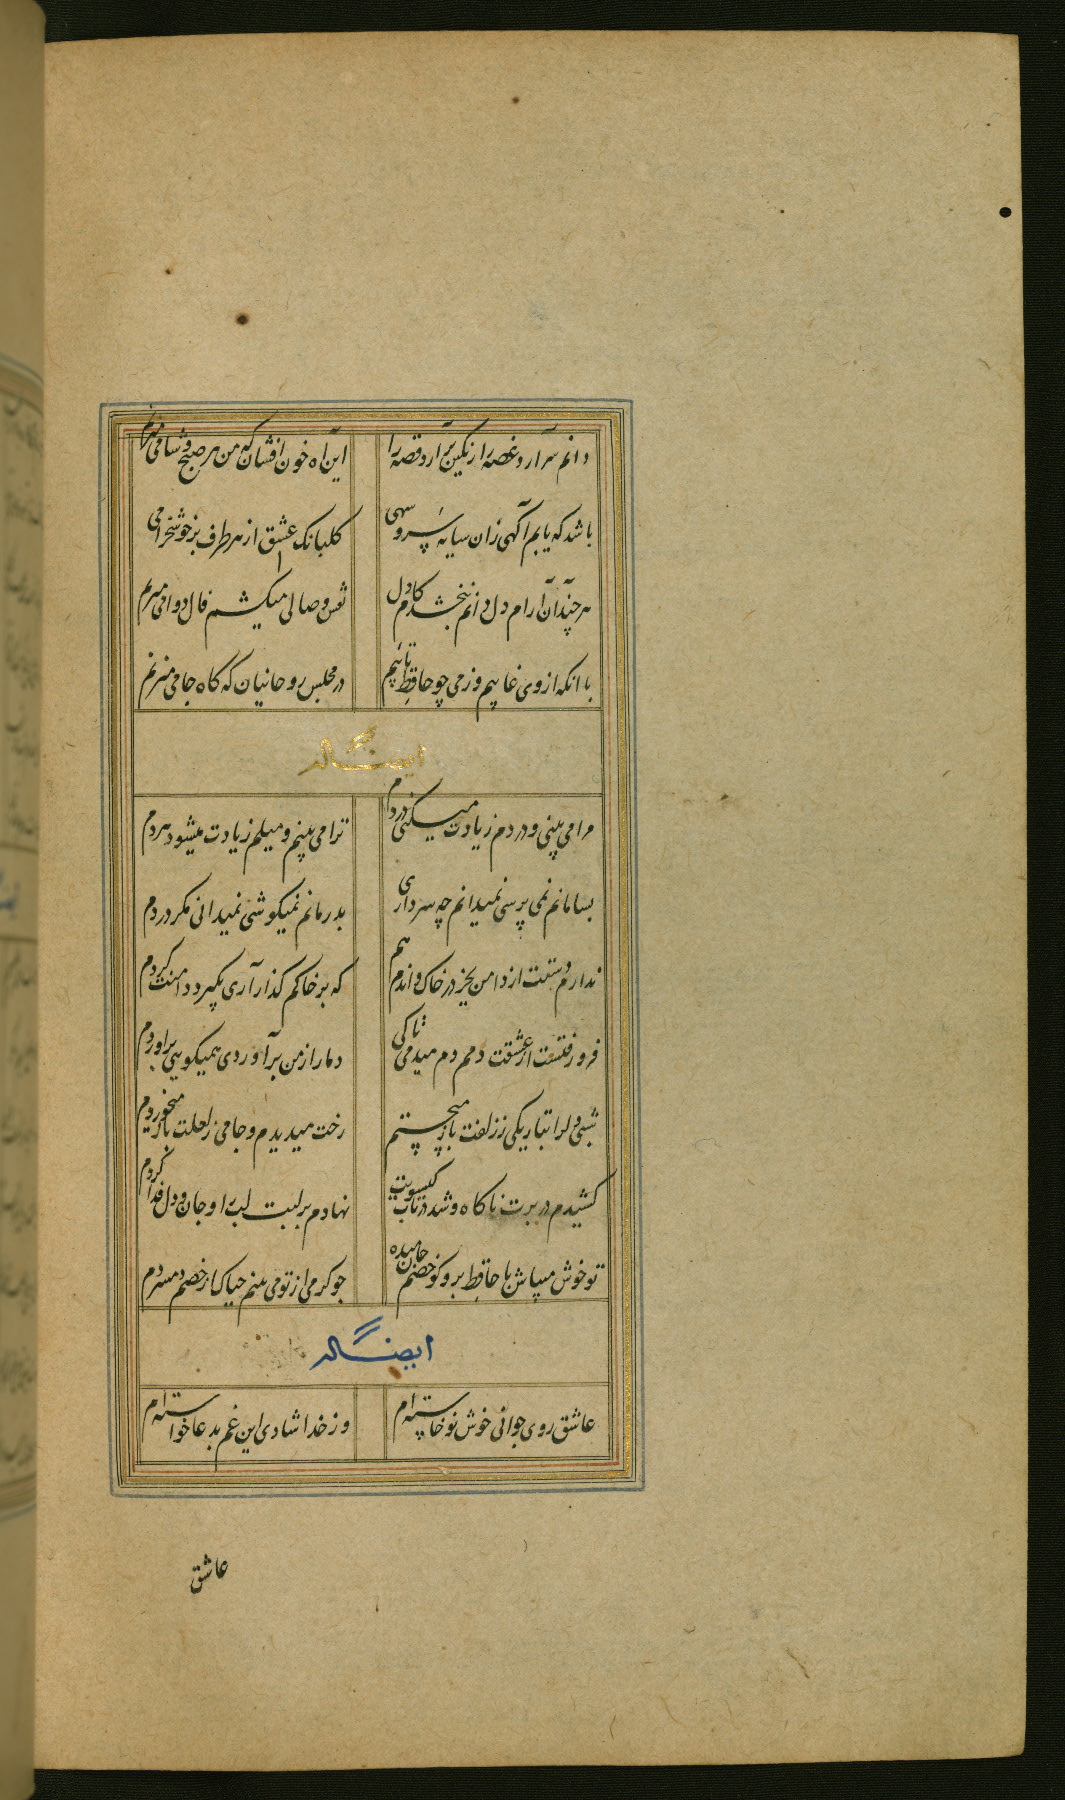 دانم سرآرد غصه را رنگین برآرد قصه را
این آه خون افشان که من هر صبح و شامی میزنم
باشد که یابم آگهی زان سایه سرو سهی
کلبانک عشق از هر طرف بر خوشخرامی
هر چند آن آرام دل دانم نبخشد کام دل
نقش وصالی میکشم فال دوامی میزنم
با آنکه از وی غایبم وز می چو حافظ تائبم
در مجلس روحانیان که کاه جامی میزنم
ایضاً له
مرا می بینی و دردم زیادت میکنی دردم
ترا می بینم و میلم زیادت میشود هردم
بسامانم نمی پرسی نمیدانم چه سرداری
بدرمانم نمیکوشی نمیدانی مکر دردم
ندارم دستت از دامن بجز در خاک و اندم هم
که بر خاکم کذار آری بکیرد دامنت کردم
فرو رفتست از عشقت دمم دم میدمی تا کی
دمار از من برآوردی همیکویی برآوردم
شبی دلرا بتاریکی ز زلفت باز میجستم
رخت میدیدم و جامی ز لعلت باز میخوردم
کشیدم در برت ناکاه و شد در تاب کیسویت
نهادم بر لبت لب را و جان و دل فدا کردم
تو خوش میباش با حافظ برو کو خصم جان میده
چو کرمی از تو می بینم چه باک از خصم دم سردم
ایضاً له
عاشق روی جوانی خوش نوخاسته ام
وز خدا شادی این غم بدعا خواسته ام
عاشق